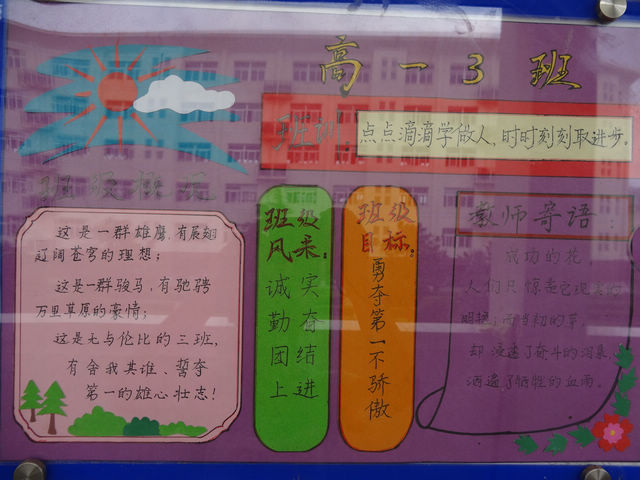 高一3班
班训：点点滴滴学做人，时时刻刻取进步。
班级概况
这是一群雄鹰，有展翅
辽阔苍穹的理想；
这是一群骏马，有驰骋
万里草原的豪情；
这是无与伦比的三班，
有舍我其谁、誓夺
第一的雄心壮志！
班级
风采：
诚实
勤奋
团结
上进
班级
目标：
勇夺第一不骄傲
教师寄语：
成功的花
人们只惊羡它现
明艳；而当初的芽，
却浸透了奋斗的泪泉，
洒遍了牺牲的血雨。